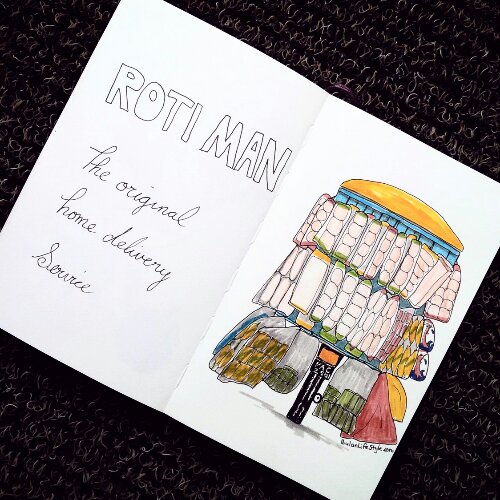 ROTI MAN
The original
home delivery
Service
BulanLifeStyle.com